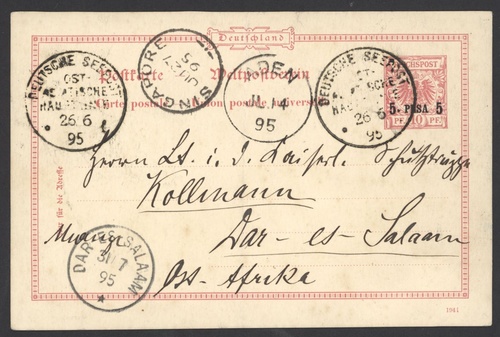 Deutschland
Postkarte Weltpostverein
Carte postale Union postale universelle
REICHSPOST
5 PESA 5
10 PF.
DEUTSCHE SEEPOST
OST-
ASIATISCHE
HAUPTLINIE
26 6
95
SINGAPORE
95
ADEN
JU 4
95
DEUTSCHE SEEPOST
OST-
ASIATISCHE
HAUPTLINIE
26 6
95
Herrn Lt. i. d. Kaiserl. Schutztruppe
für die Adresse
Kollmann
Dar-es-Salaam
Ost-Afrika
DAR-ES-SALAAM
31 7
95